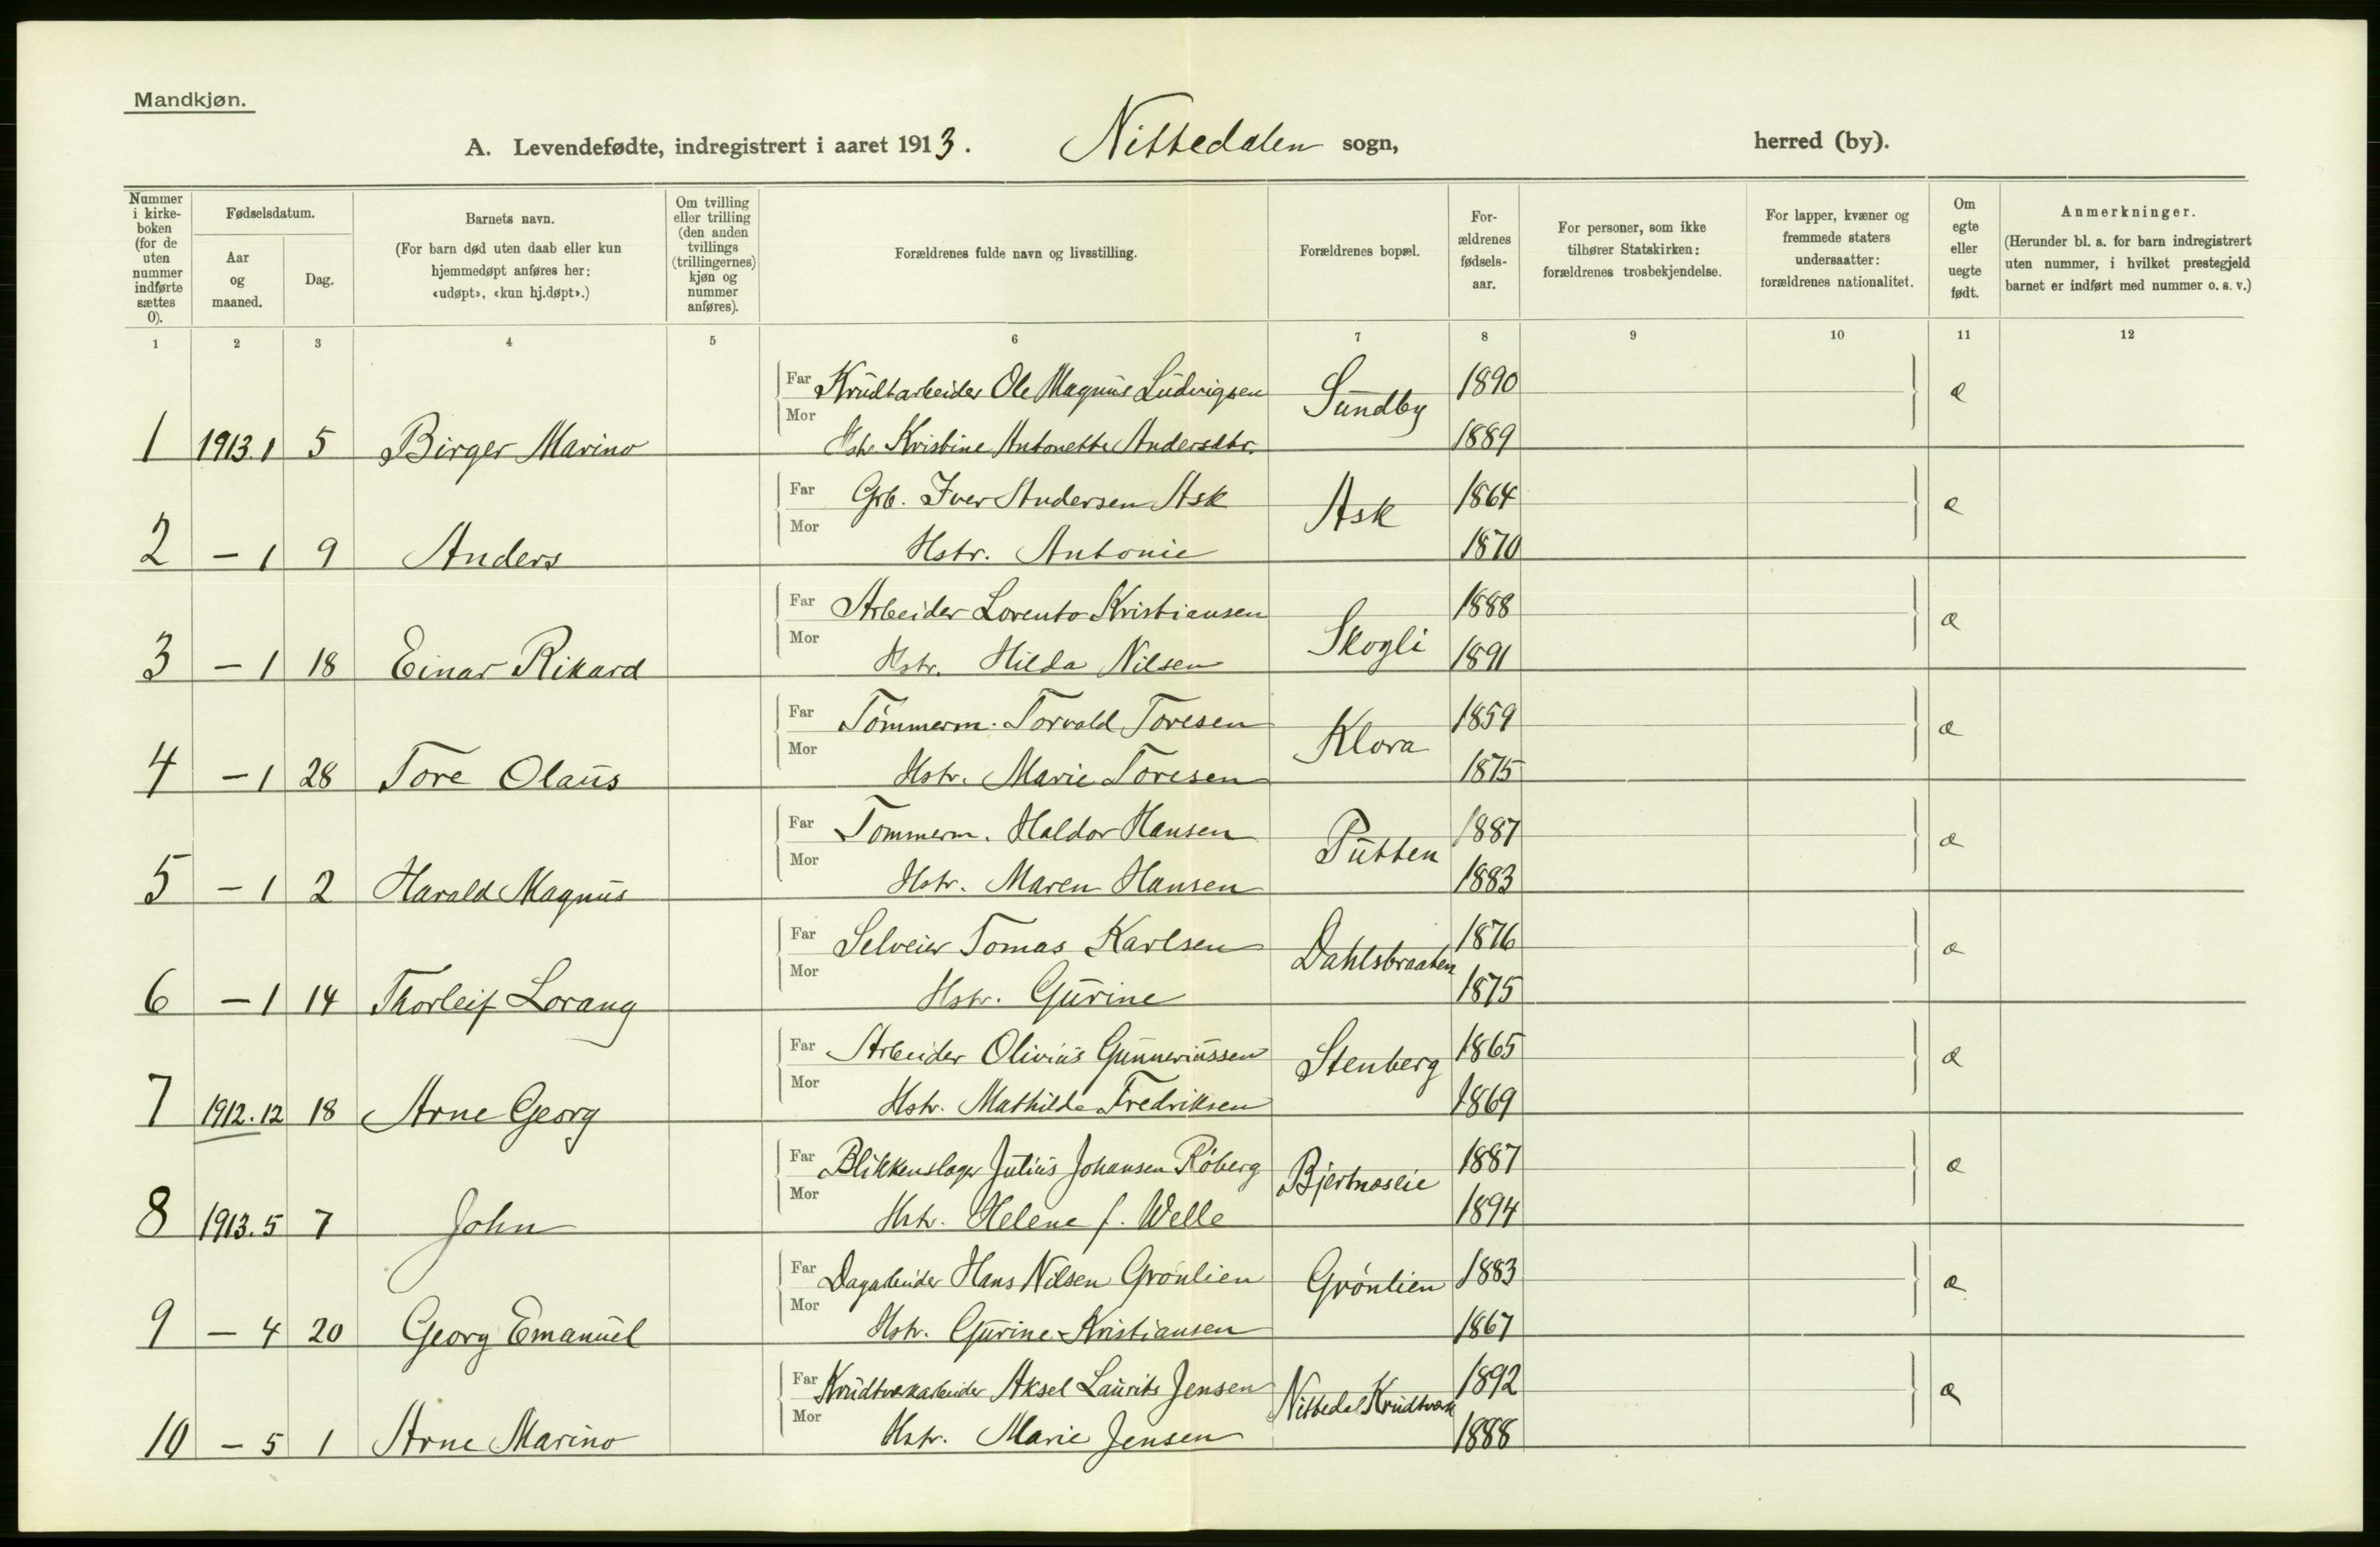 Mandkjøn.
A. Levendefødte, indregistrert i aaret 1913. Nittedalen sogn, herred (by).
Nummer i kirke-boken (for de uten nummer indførte sættes 0).
Fødselsdatum.
Aar og maaned.
Dag.
Barnets navn.
(For barn død uten daab eller kun hjemmedøpt anføres her: «udøpt», «kun hj.døpt».)
Om tvilling eller trilling (den anden tvillings (trillingernes) kjøn og nummer anføres).
Forældrenes fulde navn og livsstilling.
Forældrenes bopæl.
For-ældrenes fødsels-aar.
For personer, som ikke tilhører Statskirken: forældrenes trosbekjendelse.
For lapper, kvæner og fremmede staters undersaatter: forældrenes nationalitet.
Om egte eller uegte født.
Anmerkninger.
(Herunder bl. a. for barn indregistrert uten nummer, i hvilket prestegjeld barnet er indført med nummer o. s. v.)
1 2 3 4 5 6 7 8 9 10 11 12
Far Krudtarbeider Ole Magnus Ludvigsen Sundby 1890 e
1 1913.1 5 Birger Marino Mor Hstr Kristine Antonette Andersdtr. 1889
Far Grb. Iver Andersen Ask Ask 1864 e
2 – 1 9 Anders Mor Hstr. Antonie 1870
Far Arbeider Lorents Kristiansen Skogli 1888 e
3 – 1 18 Einar Rikard Mor Hstr. Hilda Nilsen 1891
Far Tömmerm. Torvald Toresen Klora 1859 e
4 – 1 28 Tore Olaus Mor Hstr. Marie Toresen 1875
Far Tommerm. Haldor Hansen Putten 1887 e
5 – 1 2 Harald Magnus Mor Hstr. Maren Hansen 1883
Far Selveier Tomas Karlsen Dahlsbraaten 1876 e
6 – 1 14 Thorleif Lorang Mor Hstr. Gurine 1875
Far Arbeider Olivius Gunneriussen Stenberg 1865 e
7 1912.12 18 Arne Georg Mor Hstr. Mathilde Fredriksen 1869
Far Blikkenslager Julius Johansen Röberg Bjertnæseie 1887 e
8 1913.5 7 John Mor Hstr. Helene f. Welle 1894
Far Dagarbeider Hans Nilsen Grönlien Grönlien 1883 e
9 – 4 20 Georg Emanuel Mor Hstr. Gurine Kristiansen 1867
Far Krudtværkarbeider Aksel Laurits Jensen Nittedal Krudtværk 1892 e
10 – 5 1 Arne Marino Mor Hstr. Marie Jensen 1888